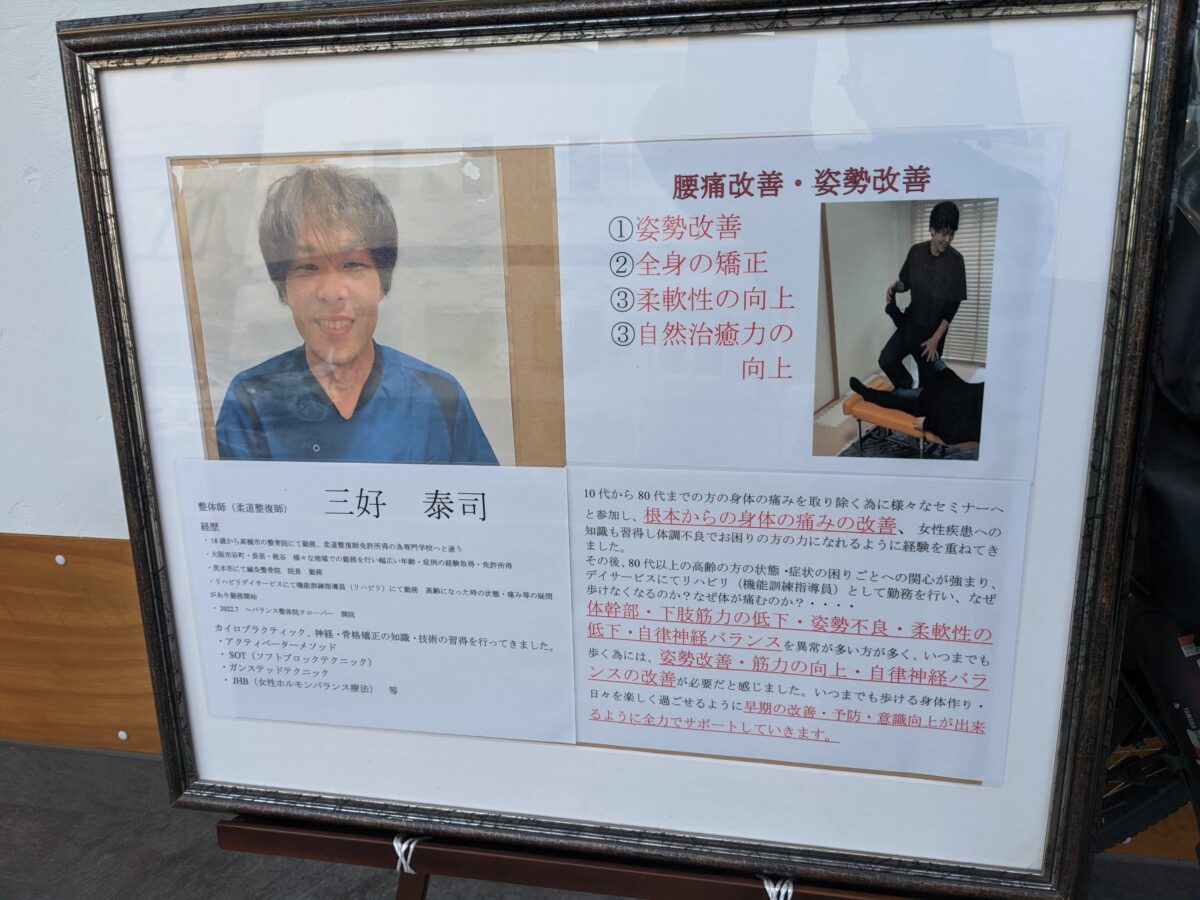 腰痛改善・姿勢改善
①姿勢改善
②全身の矯正
③柔軟性の向上
③自然治癒力の
向上
整体師(柔道整復師) 三好 泰司
経歴
・18歳から高槻市の整骨院にて勤務、柔道整復師免許所得の為専門学校へと通う
・大阪市谷町・長居・桃谷 様々な地域での勤務を行い幅広い年齢・症例の経験取得・免許所得
・茨木市にて鍼灸整骨院 院長 勤務
・リハビリデイサービスにて機能訓練指導員(リハビリ)にて勤務 高齢になった時の状態・痛み等の疑問
があり勤務開始
・2022.7 ~バランス整体院クローバー 開院
カイロプラクティック、神経・骨格矯正の知識・技術の習得を行ってきました。
・アクティベーターメソッド
・SOT(ソフトブロックテクニック)
・ガンステッドテクニック
・JHB(女性ホルモンバランス療法) 等
10代から80代までの方の身体の痛みを取り除く為に様々なセミナーへ
と参加し、根本からの身体の痛みの改善、女性疾患への
知識も習得し体調不良でお困りの方の力になれるように経験を重ねてき
ました。
その後、80代以上の高齢の方の状態・症状の困りごとへの関心が強まり、
デイサービスにてリハビリ(機能訓練指導員)として勤務を行い、なぜ
歩けなくなるのか?なぜ体が痛むのか?・・・・
体幹部・下肢筋力の低下・姿勢不良・柔軟性の
低下・自律神経バランスを異常が多い方が多く、いつまでも
歩く為には、姿勢改善・筋力の向上・自律神経バラ
ンスの改善が必要だと感じました。いつまでも歩ける身体作り・
日々を楽しく過ごせるように早期の改善・予防・意識向上が出来
るように全力でサポートしていきます。